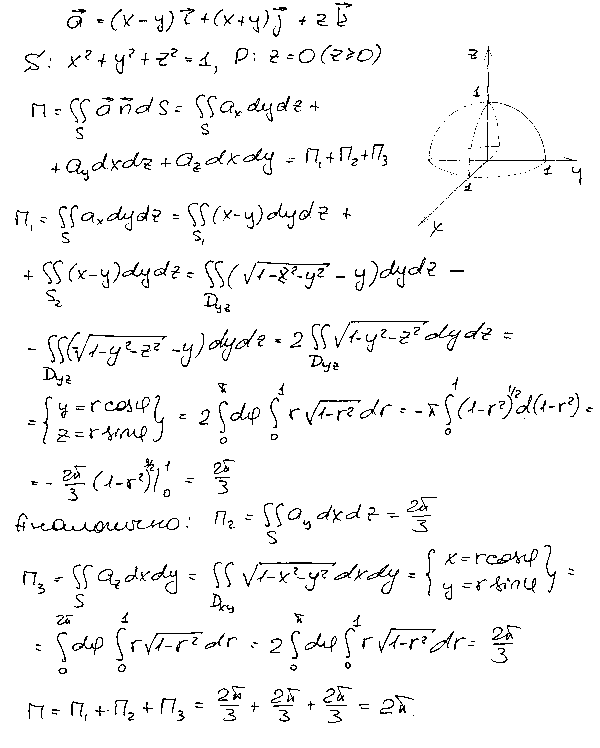 a⃗ = (x-y)i⃗ + (x+y)j⃗ + zk⃗
S: x² + y² + z² = 1, P: z = 0 (z ≥ 0)
z
1
1
1
y
x
П = ∬_S a⃗ n⃗ dS = ∬_S aₓ dydz +
+ a_y dxdz + a_z dxdy = П₁ + П₂ + П₃
П₁ = ∬_S aₓ dydz = ∬_{S₁} (x-y) dydz +
+ ∬_{S₂} (x-y) dydz = ∬_{D_yz} (√(1-z²-y²) - y) dydz -
- ∬_{D_yz} (-√(1-y²-z²) - y) dydz = 2 ∬_{D_yz} √(1-y²-z²) dydz =
= { y = r cosφ z = r sinφ } = 2 ∫₀^π dφ ∫₀¹ r √(1-r²) dr = -π ∫₀¹ (1-r²)^{1/2} d(1-r²) =
= - 2π/3 (1-r²)^{3/2} |₀¹ = 2π/3
Аналогично: П₂ = ∬_S a_y dxdz = 2π/3
П₃ = ∬_S a_z dxdy = ∬_{D_xy} √(1-x²-y²) dxdy = { x = r cosφ y = r sinφ } =
= ∫₀^{2π} dφ ∫₀¹ r √(1-r²) dr = 2 ∫₀^π dφ ∫₀¹ r √(1-r²) dr = 2π/3
П = П₁ + П₂ + П₃ = 2π/3 + 2π/3 + 2π/3 = 2π.